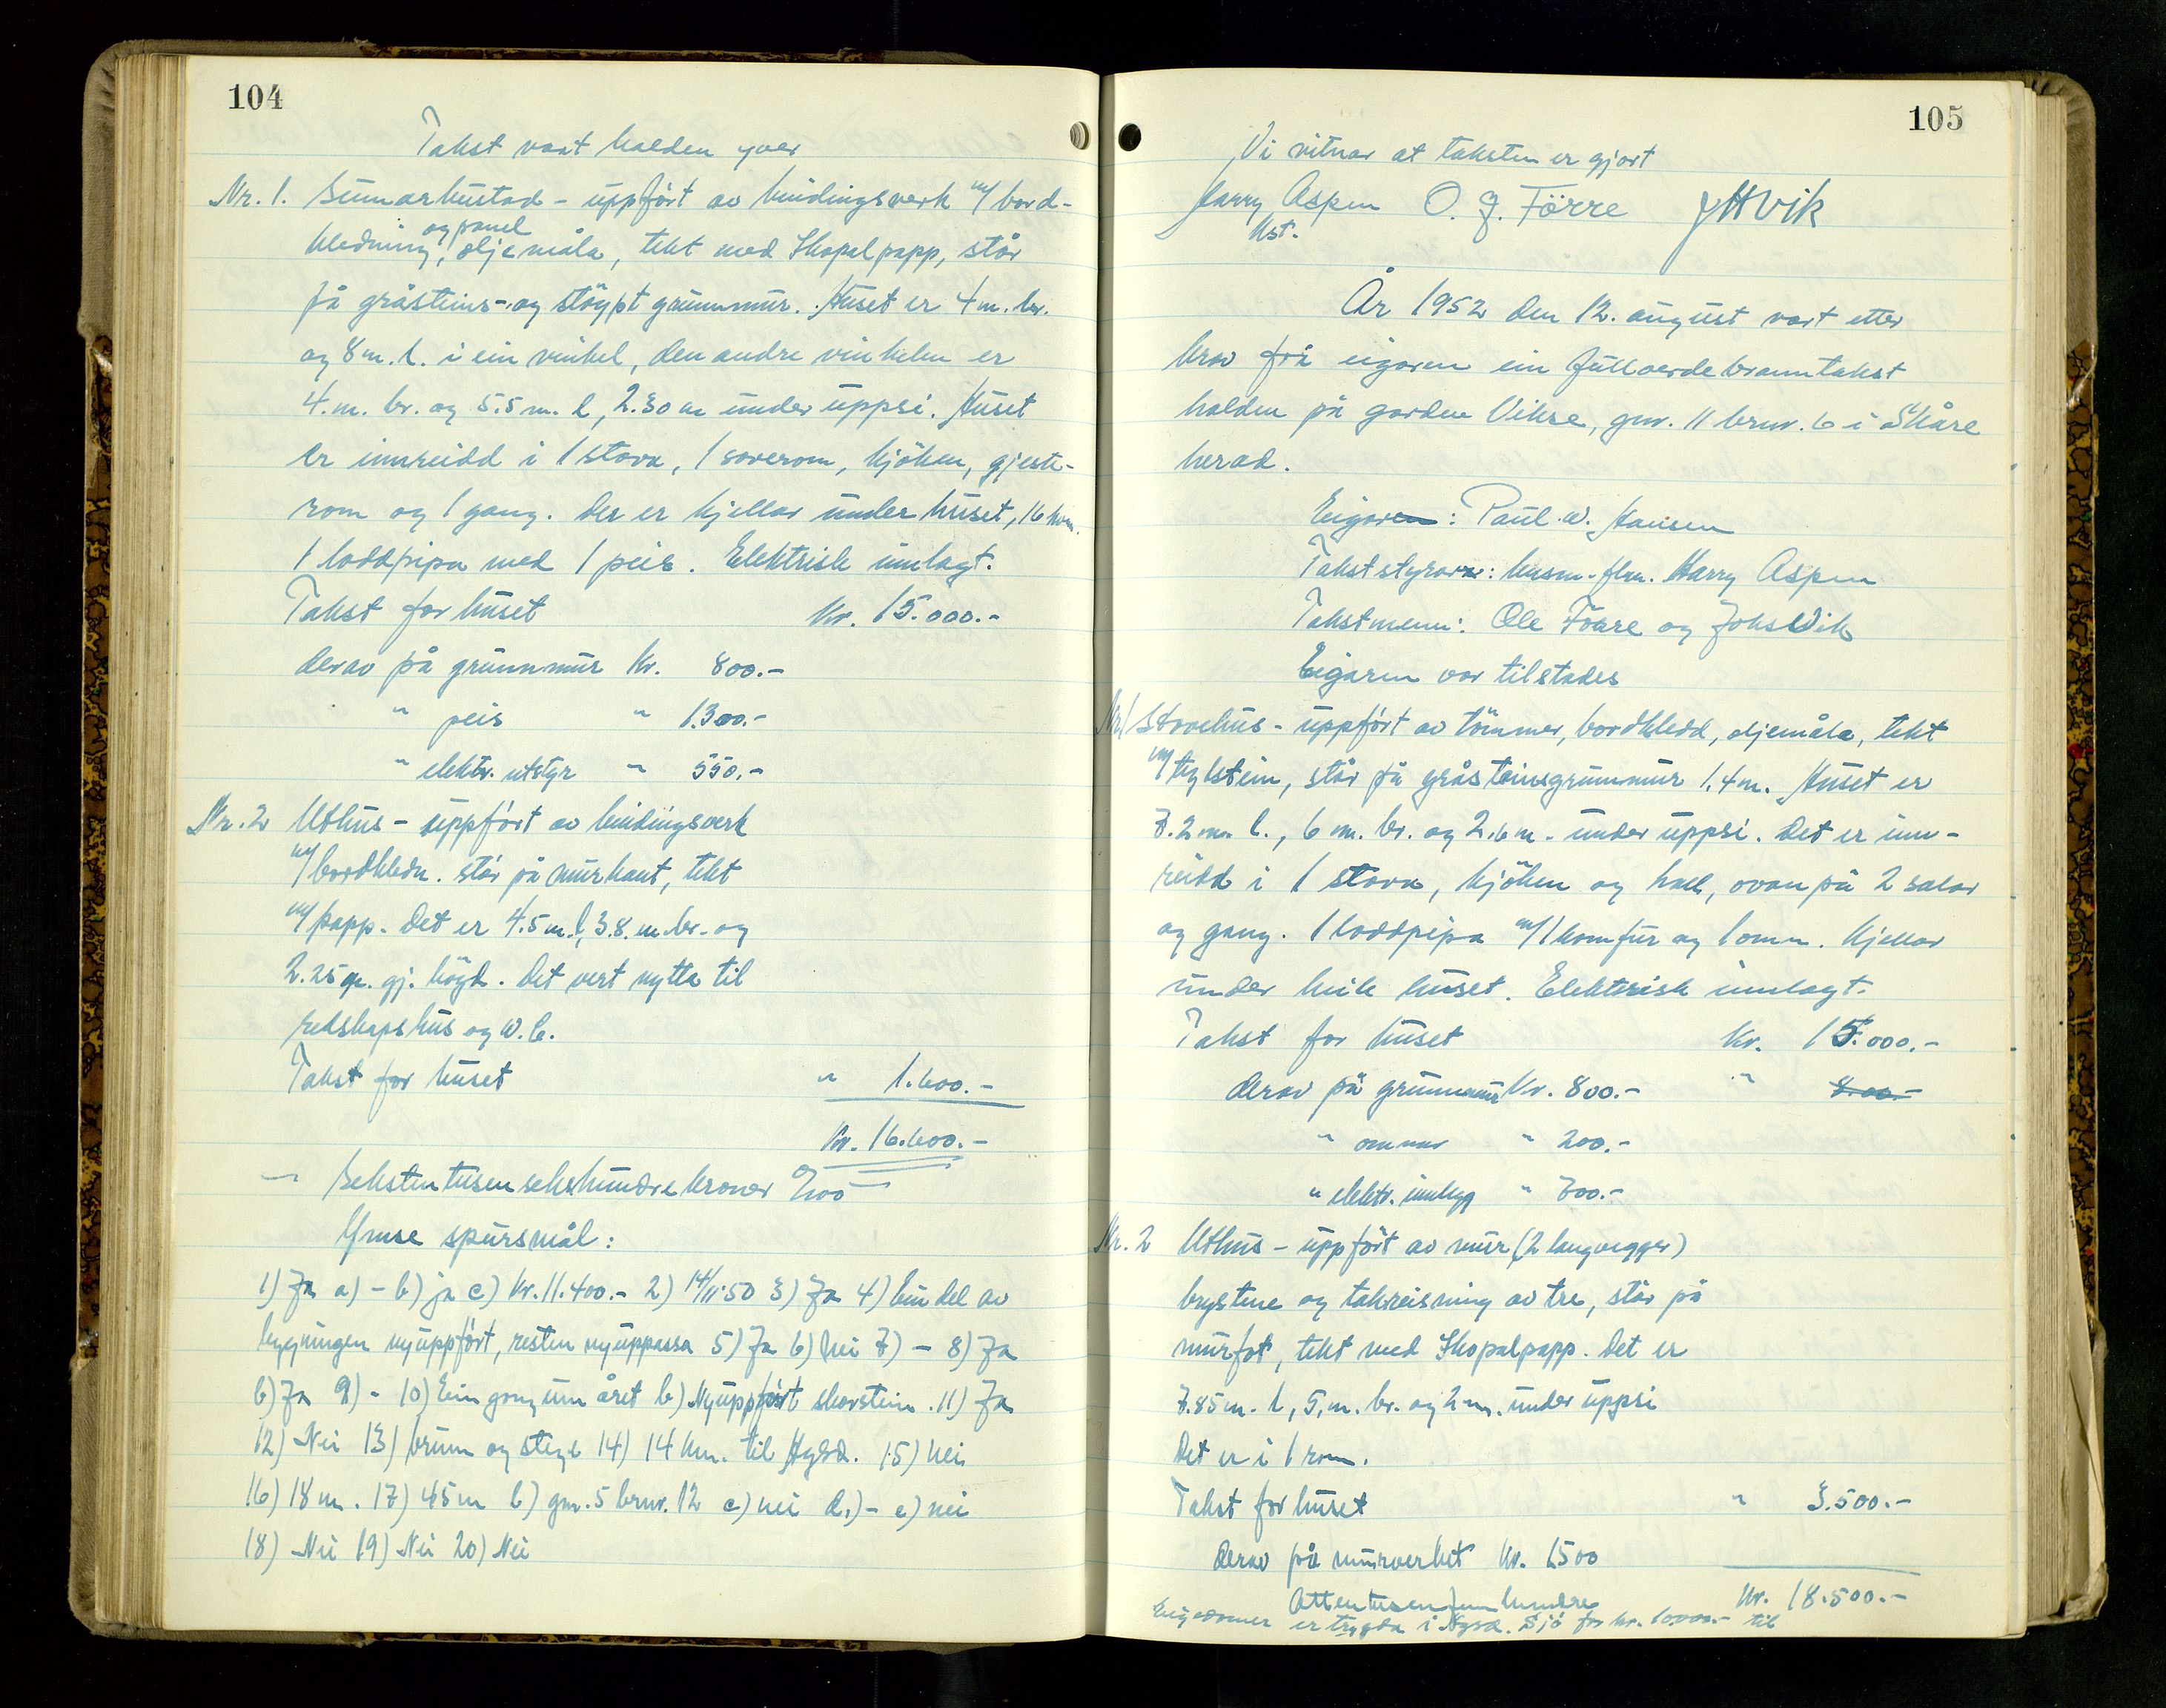 104
Takst vart halden yver
Nr. 1. Sumarbustad - uppført av bindingsverk m/ bord-
og panel
kledning, oljemåla, tekt med Skopalpapp, står
på gråsteins- og støypt grunnmur. Huset er 4 m. br.
og 8 m. l. i ein vinkel, den andre vinkelen er
4. m. br. og 5.5 m. l, 2.30 m under uppsi. Huset
er innreidd i 1 stova, 1 soverom, kjøken, gjeste-
rom og 1 gang. Der er kjellar under huset, 16 kvm.
1 loddpipa med 1 peis. Elektrisk innlagt.
Takst for huset Kr. 15.000.-
derav på grunnmur Kr. 800.-
" peis " 1.300.-
" elektr. utstyr " 550.-
Nr. 2 Uthus - uppført av bindingsverk
m/ bordkledn. står på murkant, tekt
m/ papp. Det er 4.5 m. l, 3.8. m. br. og
2.25 m. gj. høgd. Det vert nytta til
redskapshus og W.C.
Takst for huset " 1.600.-
Kr. 16.600.-
- Sekstentusensekshundre kroner
Ymse spursmål:
1) Ja a) - b) ja c) Kr. 11.400.- 2) 14/11-50 3) Ja 4) Ein del av
bygningen nyuppført, resten nyuppussa 5) Ja 6) Nei 7) - 8) Ja
b) Ja 9) - 10) Ein gong um året b) Nyuppført skorstein. 11) Ja
12) Nei 13) brunn og stege 14) 14 km. til Hgsd. 15) Nei
16) 18 m. 17) 45 m b) gnr. 5 brnr. 12 c) nei d.) - e) nei
18) Nei 19) Nei 20) Nei
105
Vi vitnar at taksten er gjort
Harry Aspen O. J. Førre JHVik
kst.
År 1952 den 12. august vart etter
krav frå eigaren ein fullverdebranntakst
halden på garden Vikse, gnr. 11 brnr. 6 i Skåre
herad.
Eigaren: Paul W. Hansen
Takststyrar: lensm. flm. Harry Aspen
Takstmenn: Ole Førre og Johs Vik
Eigaren var tilstades
Nr 1 Stovehus - uppført av tømmer, bordkledd, oljemåla, tekt
m/ teglstein, står på gråsteinsgrunnmur 1.4 m. Huset er
7.2 m. l., 6 m. br. og 2.6 m. under uppsi. Det er inn-
reidd i 1 stova, kjøken og hall, ovanpå 2 salar
og gang. 1 loddpipa m/ 1 komfur og 1 omn. Kjellar
under heile huset. Elektrisk innlagt.
Takst for huset Kr. 15.000.-
derav på grunnmur Kr. 800.- " 8.00.-
" omnar " 200.-
" elektr. innlegg " 700.-
Nr. 2 Uthus - uppført av mur (2 langvegger)
brystene og takreisning av tre, står på
murfot, tekt med Skopalpapp. Det er
7.85 m. l, 5, m. br. og 2 m. under uppsi
Det er i 1 rom.
Takst for huset " 3.500.-
derav på murverket Kr. 1500
Attentusenfemhundre Kr. 18.500.-
Eigedomer er trygda i Hgsd. Sjø for kr. 10000.- til